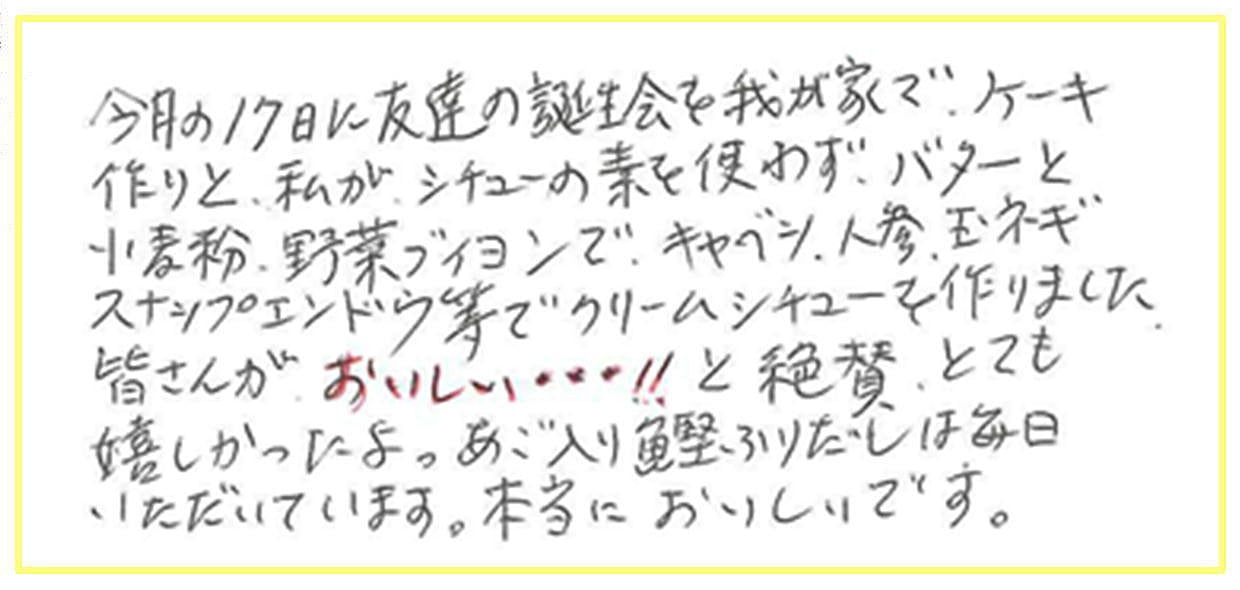 今月の17日に友達の誕生会を我が家で、ケーキ
作りと、私が、シチューの素を使わず、バターと
小麦粉、野菜ブイヨンで、キャベツ、人参、玉ネギ
スナップエンドウ等でクリームシチューを作りました、
皆さんが、おいしい・・・!!と絶賛、とても
嬉しかったよっあご入り鰹ふりだしは毎日
いただいています。本当においしいです。